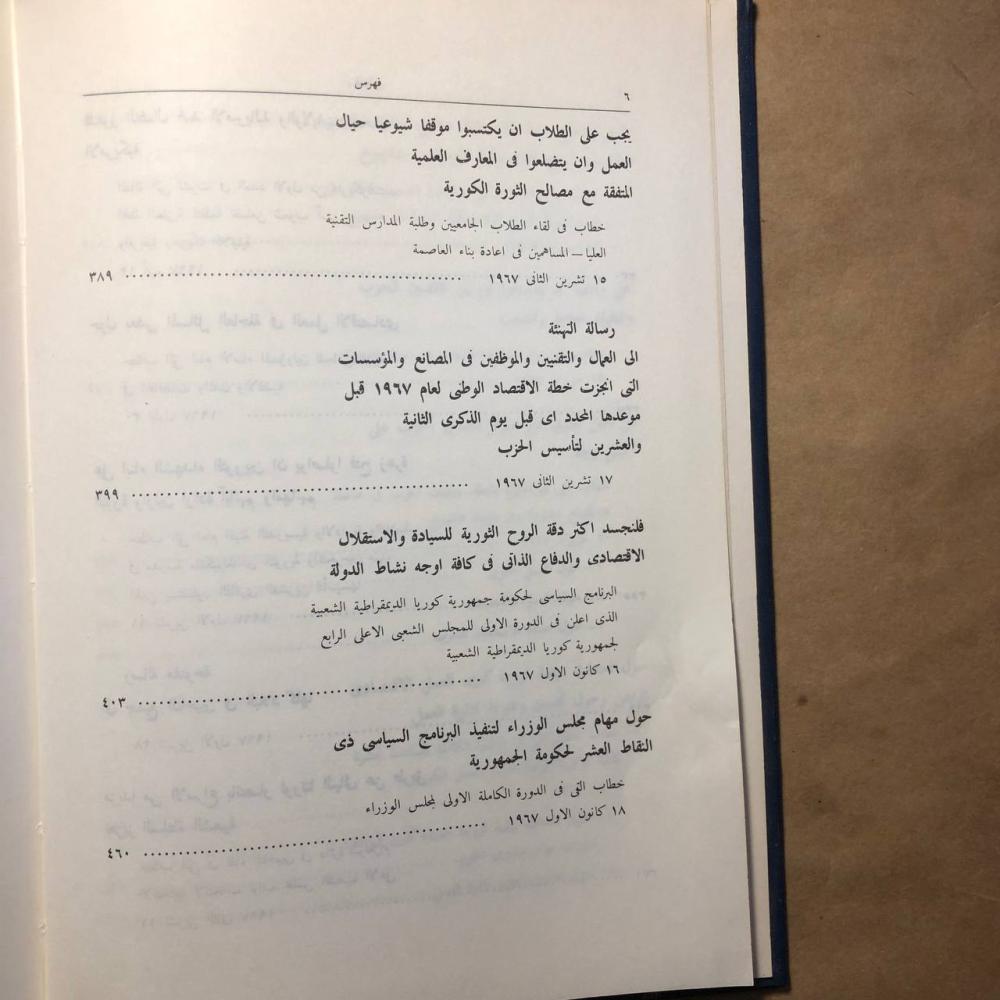 ٦
فهرس
يجب على الطلاب ان يكتسبوا موقفا شيوعيا حيال
العمل وان يتضلعوا فى المعارف العلمية
المتفقة مع مصالح الثورة الكورية
خطاب فى لقاء الطلاب الجامعيين وطلبة المدارس التقنية
العليا – المساهمين فى اعادة بناء العاصمة
١٥ تشرين الثانى ١٩٦٧ ٣٨٩
رسالة التهنئة
الى العمال والتقنيين والموظفين فى المصانع والمؤسسات
التى انجزت خطة الاقتصاد الوطنى لعام ١٩٦٧ قبل
موعدها المحدد اى قبل يوم الذكرى الثانية
والعشرين لتأسيس الحزب
١٧ تشرين الثانى ١٩٦٧ ٣٩٩
فلنجسد اكثر دقة الروح الثورية للسيادة والاستقلال
الاقتصادى والدفاع الذاتى فى كافة اوجه نشاط الدولة
البرنامج السياسى لحكومة جمهورية كوريا الديمقراطية الشعبية
الذى اعلن فى الدورة الاولى للمجلس الشعبى الاعلى الرابع
لجمهورية كوريا الديمقراطية الشعبية
١٦ كانون الاول ١٩٦٧ ٤٠٣
حول مهام مجلس الوزراء لتنفيذ البرنامج السياسى ذى
النقاط العشر لحكومة الجمهورية
خطاب القى فى الدورة الكاملة الاولى لمجلس الوزراء
١٨ كانون الاول ١٩٦٧ ٤٦٠